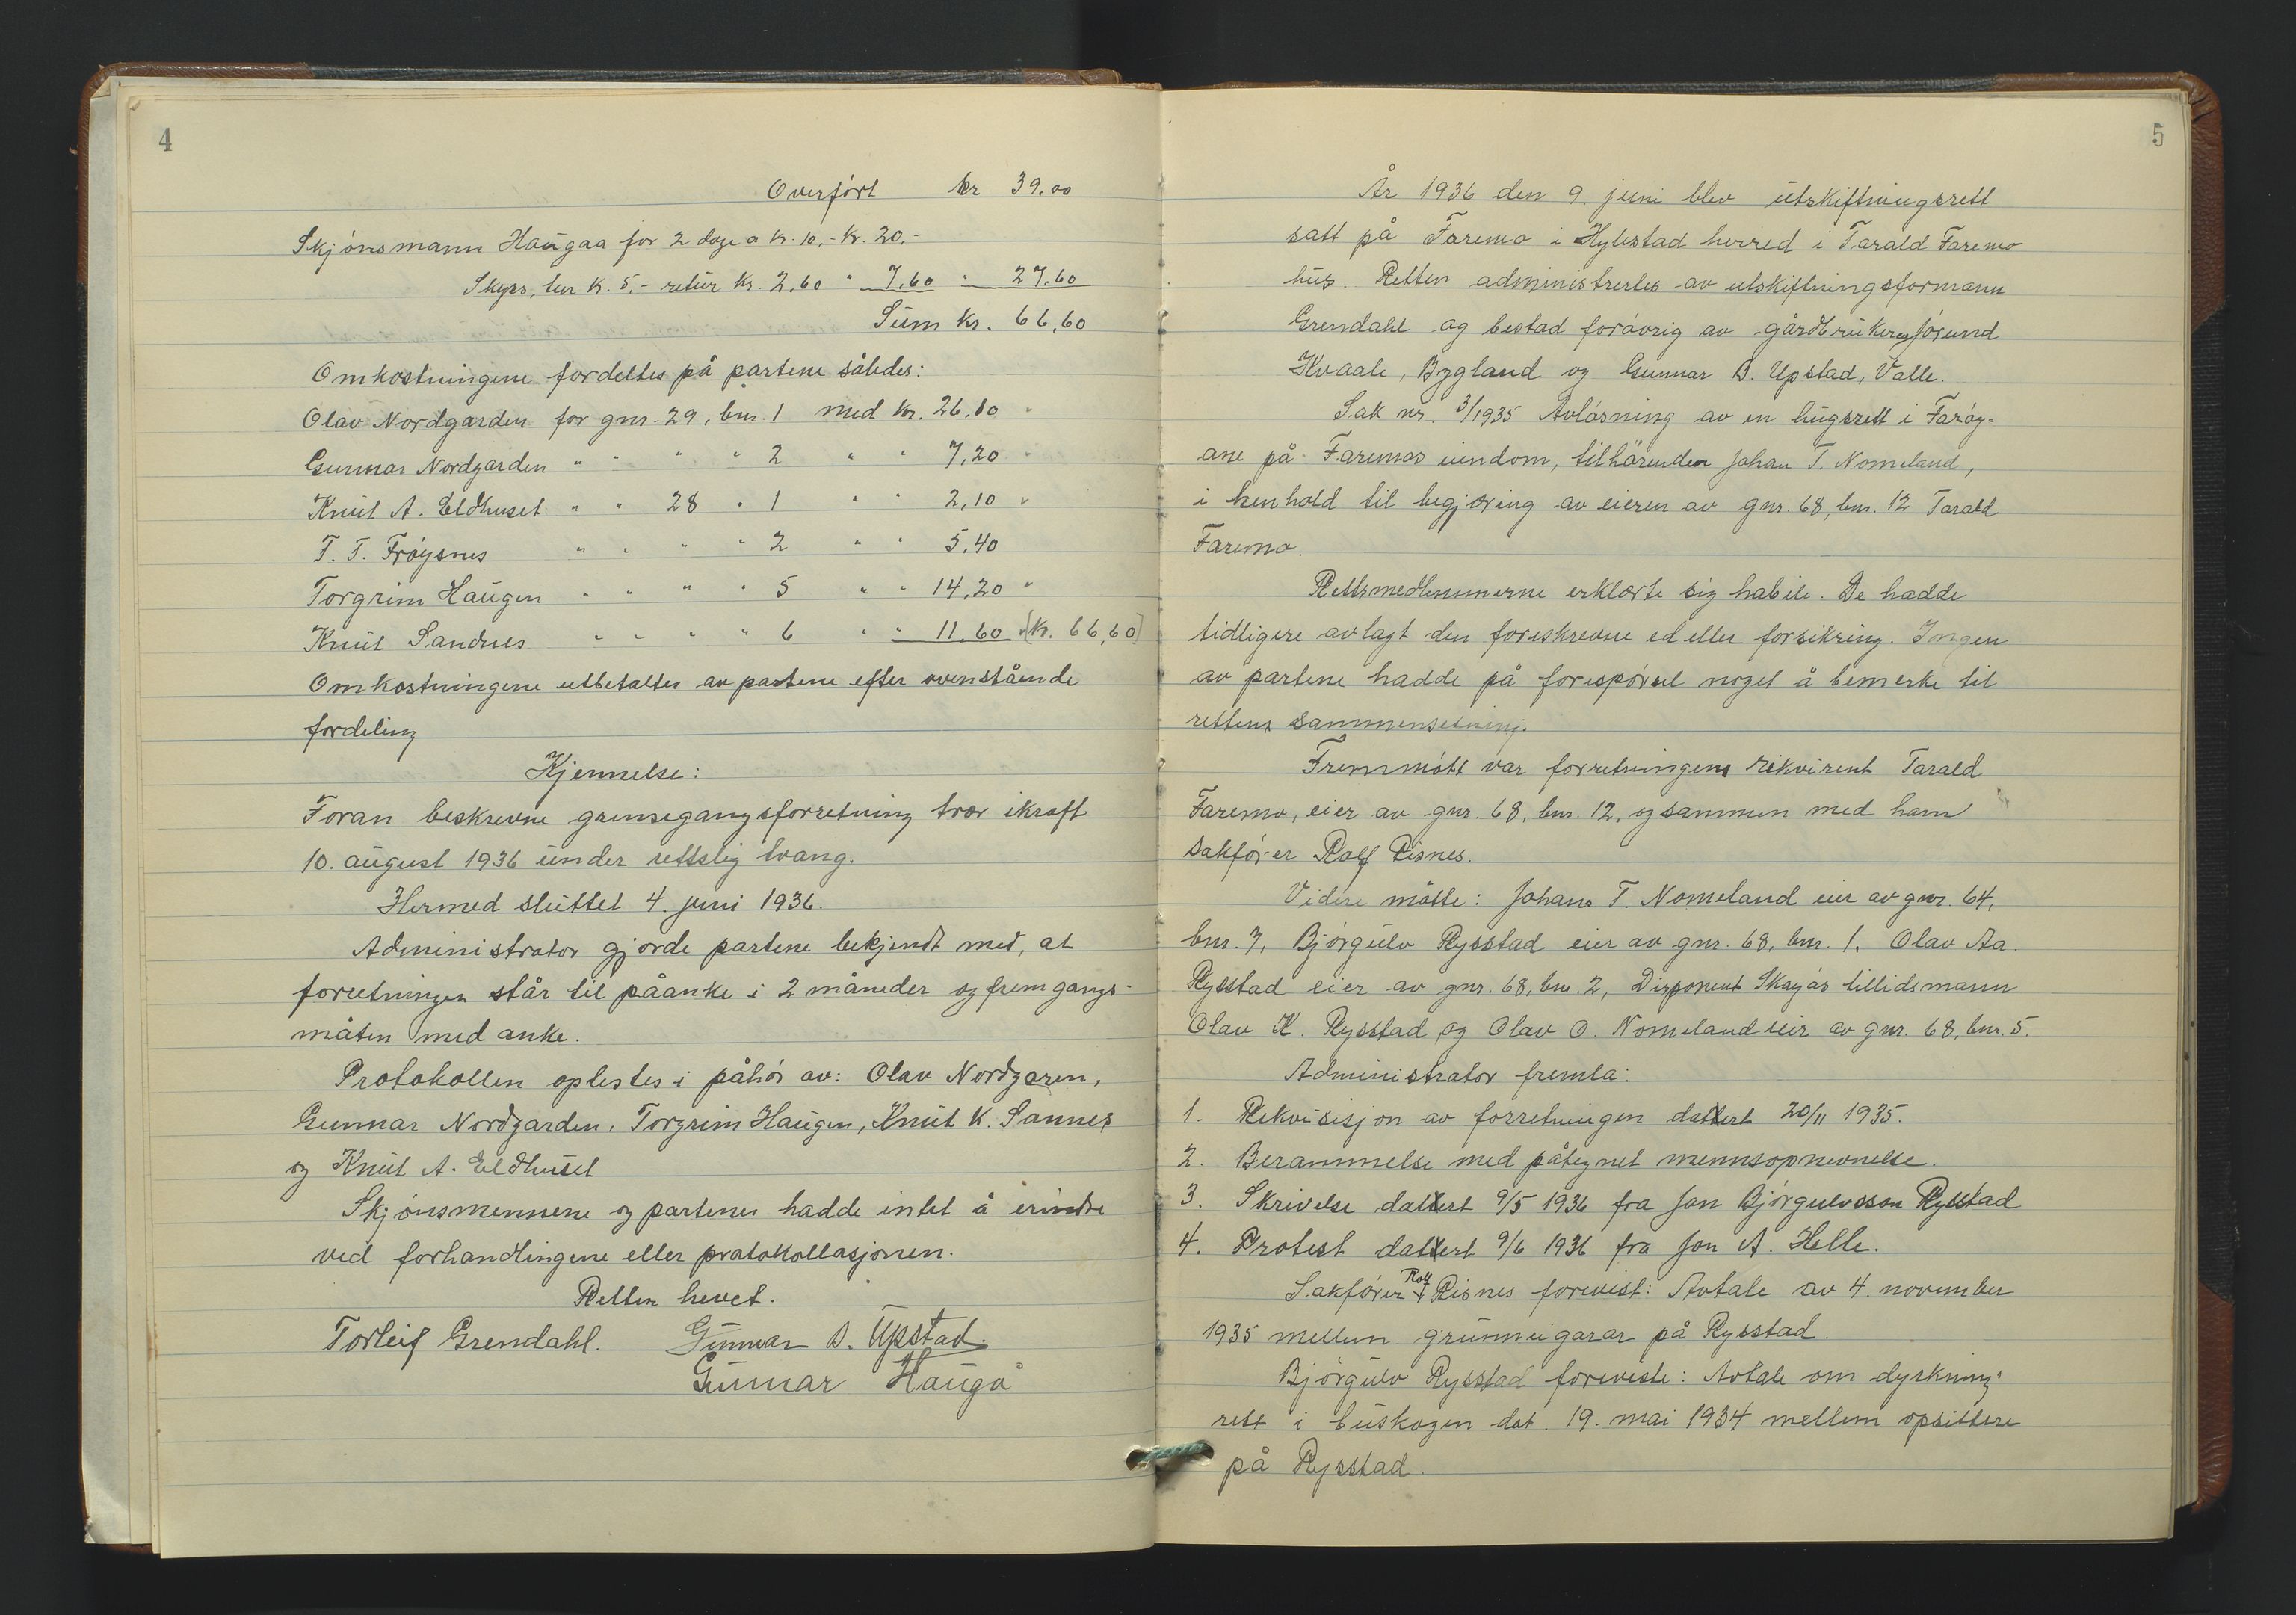 4
Overført kr 39.00
Skjønsmann Haugaa for 2 dage a kr. 10,- kr. 20.-
Skyss, tur k. 5.- retur kr. 2.60 " 7.60 " 27.60
Sum kr. 66,60
Omkostningene fordeltes på partene således:
Olav Nordgarden for gnr. 29, bnr. 1 med kr. 26.10 "
Gunnar Nordgarden " " " " 2 " " 7,20 "
Knut A. Eldhuset " " 28 " 1 " " 2,10 "
T. T. Frøysnes " " " " 2 " " 5.40
Torgrim Haugen " " " " 5 " " 14,20 "
Knut Sandnes " " " " 6 " " 11.60 (kr. 66,60)
Omkostningene utbetaltes av partene efter ovenstående
fordeling
Kjennelse:
Foran beskrevne grensegangsforretning trær ikraft
10. august 1936 under rettslig tvang.
Hermed sluttet 4. juni 1936.
Administrator gjorde partene bekjendt med, at
forretningen står til påanke i 2 måneder og fremgangs-
måten med anke.
Protokollen oplestes i påhør av: Olav Nordgaren,
Gunnar Nordgarden, Torgrim Haugen, Knut K. Sannes
og Knut A. Eldhuset
Skjønsmennene og partenes hadde intet å erindre
ved forhandlingene eller protokollasjonen.
Retten hevet.
Torleif Grendahl. Gunnar D. Upstad.
Gunnar Haugå
5
År 1936 den 9. juni blev utskiftningsrett
satt på Faremo i Hylestad herred i Tarald Faremo
hus. Retten administrertes av utskiftningsformann
Grendahl og bestod forøvrig av gårdbrukerne Jørund
Kvaale, Bygland og Gunnar D. Upstad, Valle.
Sak nr. 3/1935 Avløsning av en hugsrett i Farøy-
ane på Faremos eiendom, tilhørenden Johan T. Nomeland,
i henhold til begjæring av eieren av gnr. 68, bnr. 12 Tarald
Faremo.
Rettsmedlemmerne erklærte sig habile. De hadde
tidligere avlagt den foreskrevne ed eller forsikring. Ingen
av partene hadde på forespørsel noget å bemerke til
rettens sammensetning.
Fremmøtt var forretningens rekvirent Tarald
Faremo, eier av gnr. 68, bnr. 12, og sammen med ham
sakfører Rolf Risnes.
Videre møtte: Johans T. Nomeland eier av gnr. 64,
bnr. 7, Bjørgulv Rysstad eier av gnr. 68, bnr. 1, Olav Aa.
Rysstad eier av gnr. 68, bnr. 2, Disponent Skayås tillidsmann
Olav K. Rysstad og Olav O. Nomeland eier av gnr. 68, bnr. 5.
Administrator fremla:
1. Rekvisisjon av forretningen datert 20/11 1935.
2. Berammelse med påtegnet mennsopnevnelse.
3. Skrivelse datert 9/5 1936 fra Jon Bjørgulvsson Rysstad
4. Protest datert 9/6 1936 fra Jon A. Helle.
Sakfører Rolf Risnes forevist: Avtale av 4. november
1935 mellem grunneigarar på Rysstad.
Bjørgulv Rysstad foreviste: Avtale om dyrknings-
rett i buskogen dat. 19. mai 1934 mellem opsittere
på Rysstad.